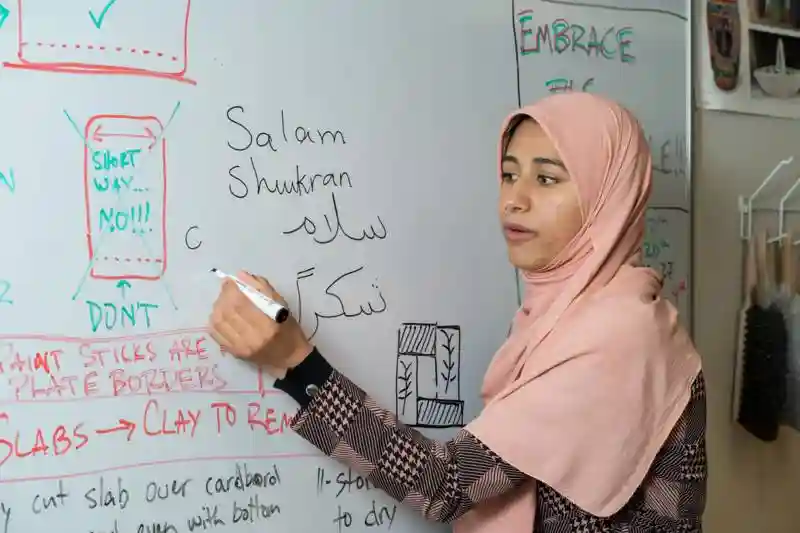 SHORT
WAY...
NO!!!
DON'T
Salam
Shukran
سلام
شكراً
C
EMBRACE
PAINT STICKS ARE
PLATE BORDERS
SLABS → CLAY TO REM
cut slab over cardboard
even with bottom
to dry